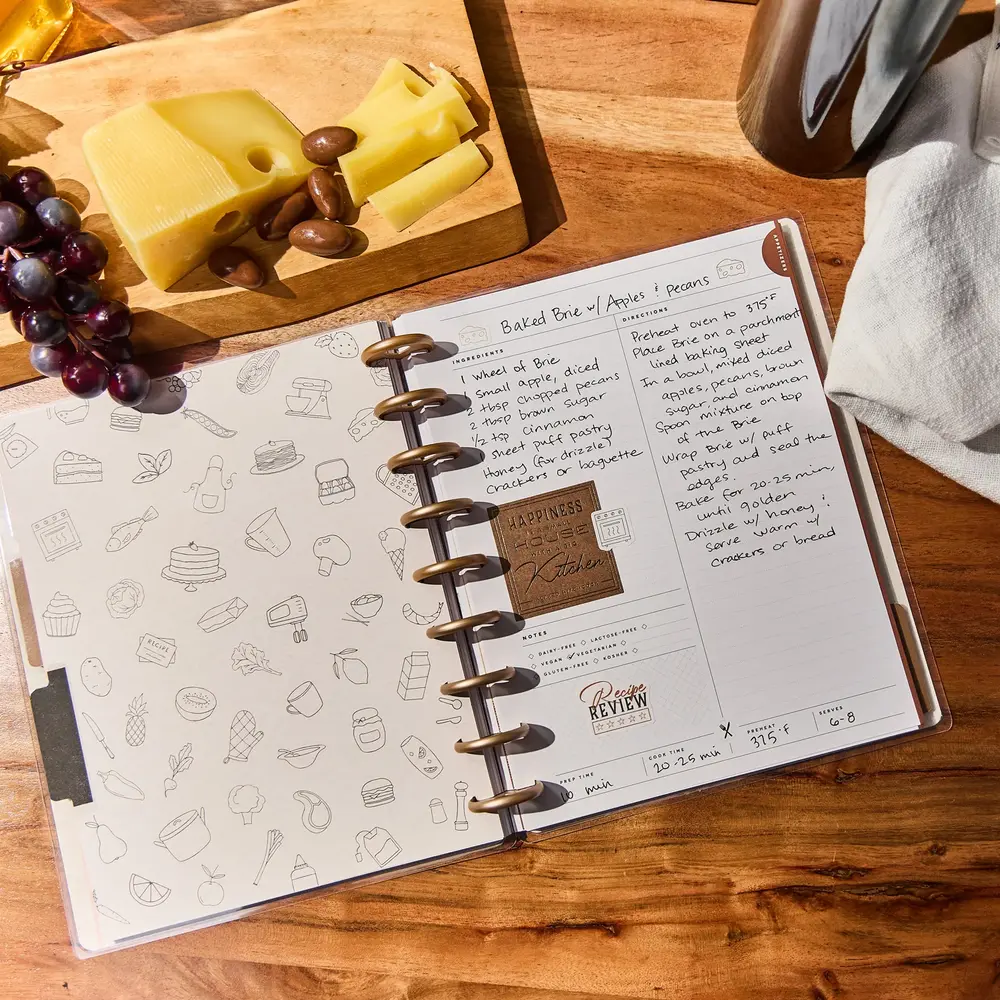 RECIPE
APPETIZERS
Baked Brie w/ Apples & pecans
INGREDIENTS
1 wheel of Brie
1 small apple, diced
2 tbsp chopped pecans
2 tbsp brown sugar
1/2 tsp cinnamon
1 sheet puff pastry
Honey (for drizzle)
Crackers or baguette
HAPPINESS
HOUSE
WITH A BIG
Kitchen
NOTES
◇ DAIRY-FREE ◇ LACTOSE-FREE ◇
◇ VEGAN ✓ VEGETARIAN ◇
◇ GLUTEN-FREE ◇ KOSHER ◇
Recipe
REVIEW
DIRECTIONS
Preheat oven to 375°F
Place Brie on a parchment
lined baking sheet
In a bowl, mixed diced
apples, pecans, brown
sugar, and cinnamon
Spoon mixture on top
of the Brie
Wrap Brie w/ puff
pastry and seal the
edges.
Bake for 20-25 min,
until golden
Drizzle w/ honey &
serve warm w/
crackers or bread
PREP TIME
10 min
COOK TIME
20-25 min
PREHEAT
375°F
SERVES
6-8